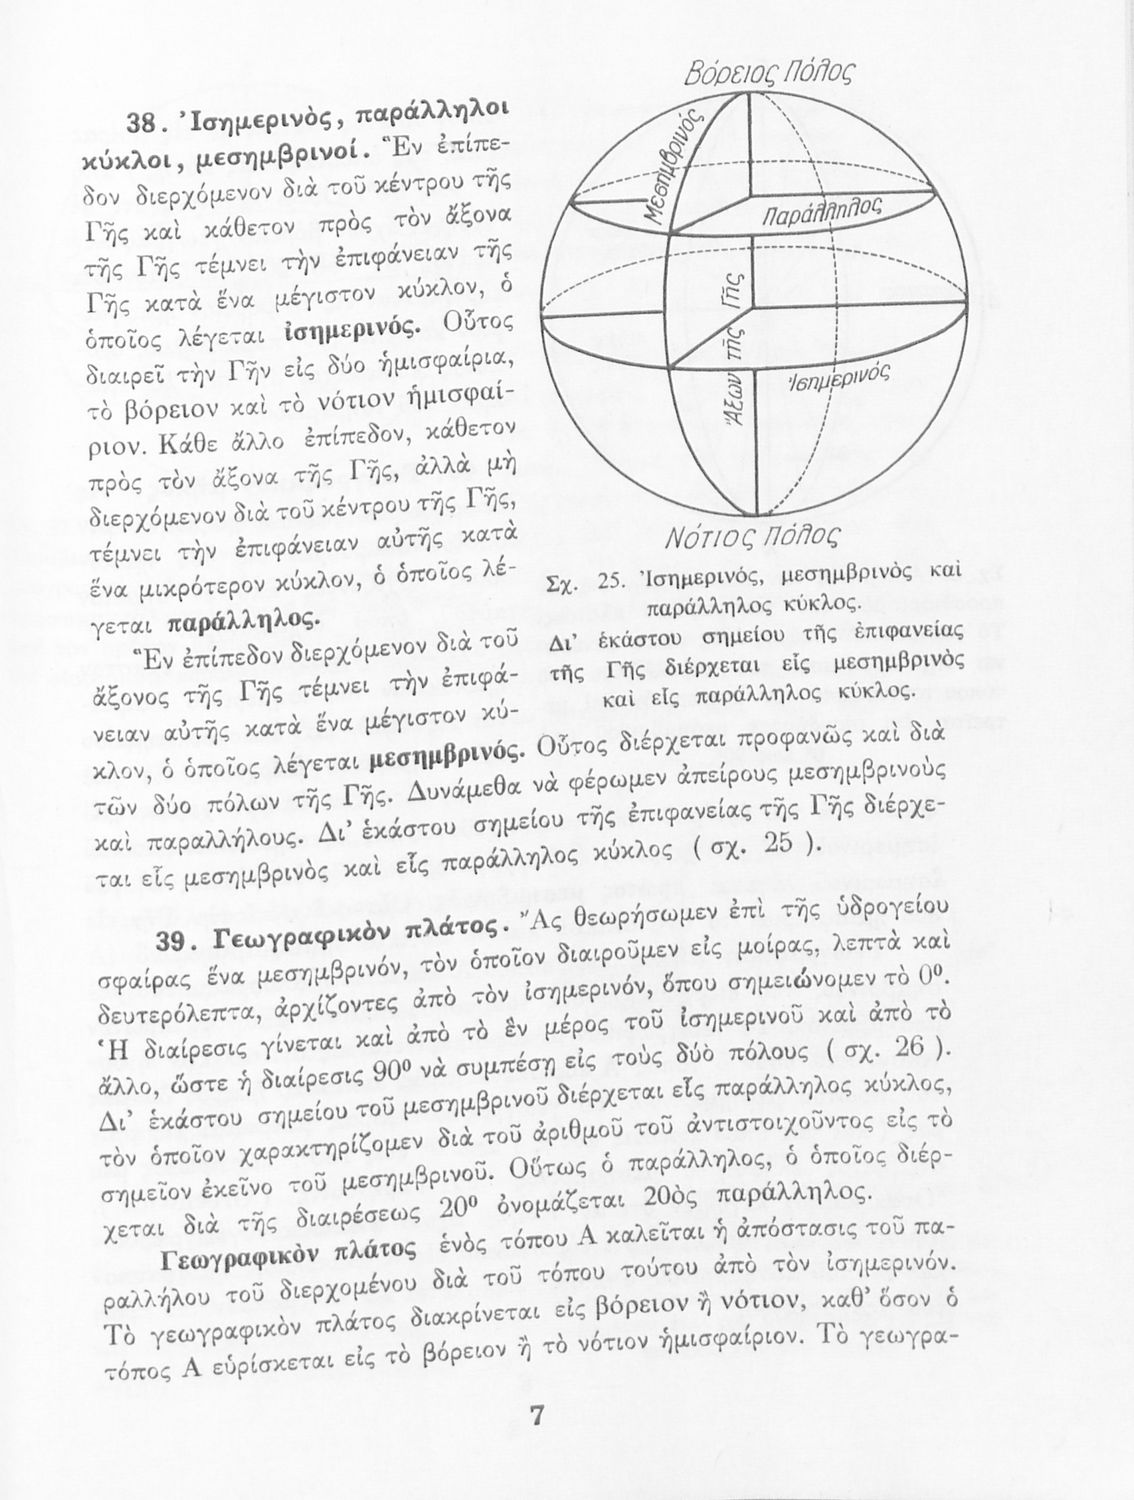 38. Ἰσημερινὸς, παράλληλοι
κύκλοι, μεσημβρινοί. Ἓν ἐπίπε-
δον διερχόμενον διὰ τοῦ κέντρου τῆς
Γῆς καὶ κάθετον πρὸς τὸν ἄξονα
τῆς Γῆς τέμνει τὴν ἐπιφάνειαν τῆς
Γῆς κατὰ ἕνα μέγιστον κύκλον, ὁ
ὁποῖος λέγεται ἰσημερινός. Οὗτος
διαιρεῖ τὴν Γῆν εἰς δύο ἡμισφαίρια,
τὸ βόρειον καὶ τὸ νότιον ἡμισφαί-
ριον. Κάθε ἄλλο ἐπίπεδον, κάθετον
πρὸς τὸν ἄξονα τῆς Γῆς, ἀλλὰ μὴ
διερχόμενον διὰ τοῦ κέντρου τῆς Γῆς,
τέμνει τὴν ἐπιφάνειαν αὐτῆς κατὰ
ἕνα μικρότερον κύκλον, ὁ ὁποῖος λέ-
γεται παράλληλος.
Ἓν ἐπίπεδον διερχόμενον διὰ τοῦ
ἄξονος τῆς Γῆς τέμνει τὴν ἐπιφά-
νειαν αὐτῆς κατὰ ἕνα μέγιστον κύ-
Βόρειος Πόλος
Μεσημβρινός
Παράλληλος
Ἄξων τῆς Γῆς
Ἰσημερινός
Νότιος Πόλος
Σχ. 25. Ἰσημερινός, μεσημβρινὸς καὶ
παράλληλος κύκλος.
Δι’ ἑκάστου σημείου τῆς ἐπιφανείας
τῆς Γῆς διέρχεται εἷς μεσημβρινὸς
καὶ εἷς παράλληλος κύκλος.
κλον, ὁ ὁποῖος λέγεται μεσημβρινός. Οὗτος διέρχεται προφανῶς καὶ διὰ
τῶν δύο πόλων τῆς Γῆς. Δυνάμεθα νὰ φέρωμεν ἀπείρους μεσημβρινοὺς
καὶ παραλλήλους. Δι’ ἑκάστου σημείου τῆς ἐπιφανείας τῆς Γῆς διέρχε-
ται εἷς μεσημβρινὸς καὶ εἷς παράλληλος κύκλος ( σχ. 25 ).
39. Γεωγραφικὸν πλάτος. Ἂς θεωρήσωμεν ἐπὶ τῆς ὑδρογείου
σφαίρας ἕνα μεσημβρινόν, τὸν ὁποῖον διαιροῦμεν εἰς μοίρας, λεπτὰ καὶ
δευτερόλεπτα, ἀρχίζοντες ἀπὸ τὸν ἰσημερινόν, ὅπου σημειώνομεν τὸ 0⁰.
Ἡ διαίρεσις γίνεται καὶ ἀπὸ τὸ ἓν μέρος τοῦ ἰσημερινοῦ καὶ ἀπὸ τὸ
ἄλλο, ὥστε ἡ διαίρεσις 90⁰ νὰ συμπέσῃ εἰς τοὺς δύὸ πόλους ( σχ. 26 ).
Δι’ ἑκάστου σημείου τοῦ μεσημβρινοῦ διέρχεται εἷς παράλληλος κύκλος,
τὸν ὁποῖον χαρακτηρίζομεν διὰ τοῦ ἀριθμοῦ τοῦ ἀντιστοιχοῦντος εἰς τὸ
σημεῖον ἐκεῖνο τοῦ μεσημβρινοῦ. Οὕτως ὁ παράλληλος, ὁ ὁποῖος διέρ-
χεται διὰ τῆς διαιρέσεως 20⁰ ὀνομάζεται 20ὸς παράλληλος.
Γεωγραφικὸν πλάτος ἑνὸς τόπου Α καλεῖται ἡ ἀπόστασις τοῦ πα-
ραλλήλου τοῦ διερχομένου διὰ τοῦ τόπου τούτου ἀπὸ τὸν ἰσημερινόν.
Τὸ γεωγραφικὸν πλάτος διακρίνεται εἰς βόρειον ἢ νότιον, καθ’ ὅσον ὁ
τόπος Α εὑρίσκεται εἰς τὸ βόρειον ἢ τὸ νότιον ἡμισφαίριον. Τὸ γεωγρα-
7